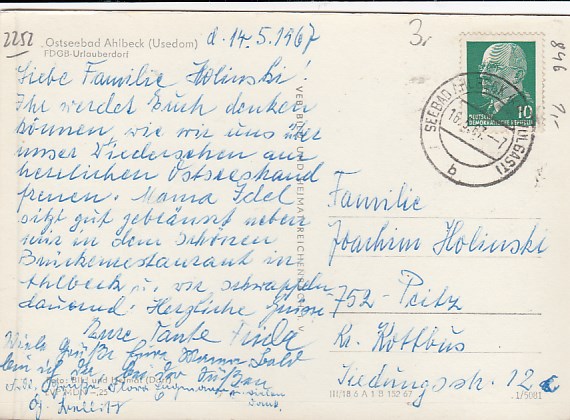 2252
„Ostseebad Ahlbeck (Usedom)
FDGB-Urlauberdorf
d. 14.5.1967
Liebe Familie Holinski!
Ihr werdet Euch denken
können, wie wir uns über
unser Wiedersehen am
herrlichen Ostseestrand
freuen. Mama Idel
sitzt gut gebeänst neben
mir in dem schönen
Brückenrestaurant in
Ahlbeck u. wir schwappeln
dauernd. Herzliche Grüsse
Eure Tante Frida
Viele Grüße Eure Mama
bin ich
Foto: Bild und Heimat
VEB BILD UND HEIMAT REICHENBACH
3,-
846
7,-
10
DEUTSCHE
DEMOKRATISCHE REPUBLIK
SEEBAD AHLBECK
WOLGAST
16.5.67
b
Familie
Joachim Holinski
752-Peitz
Kr. Kottbus
Siedlungsstr. 12c
III/18 6 A 1 B 152 67
1/5081